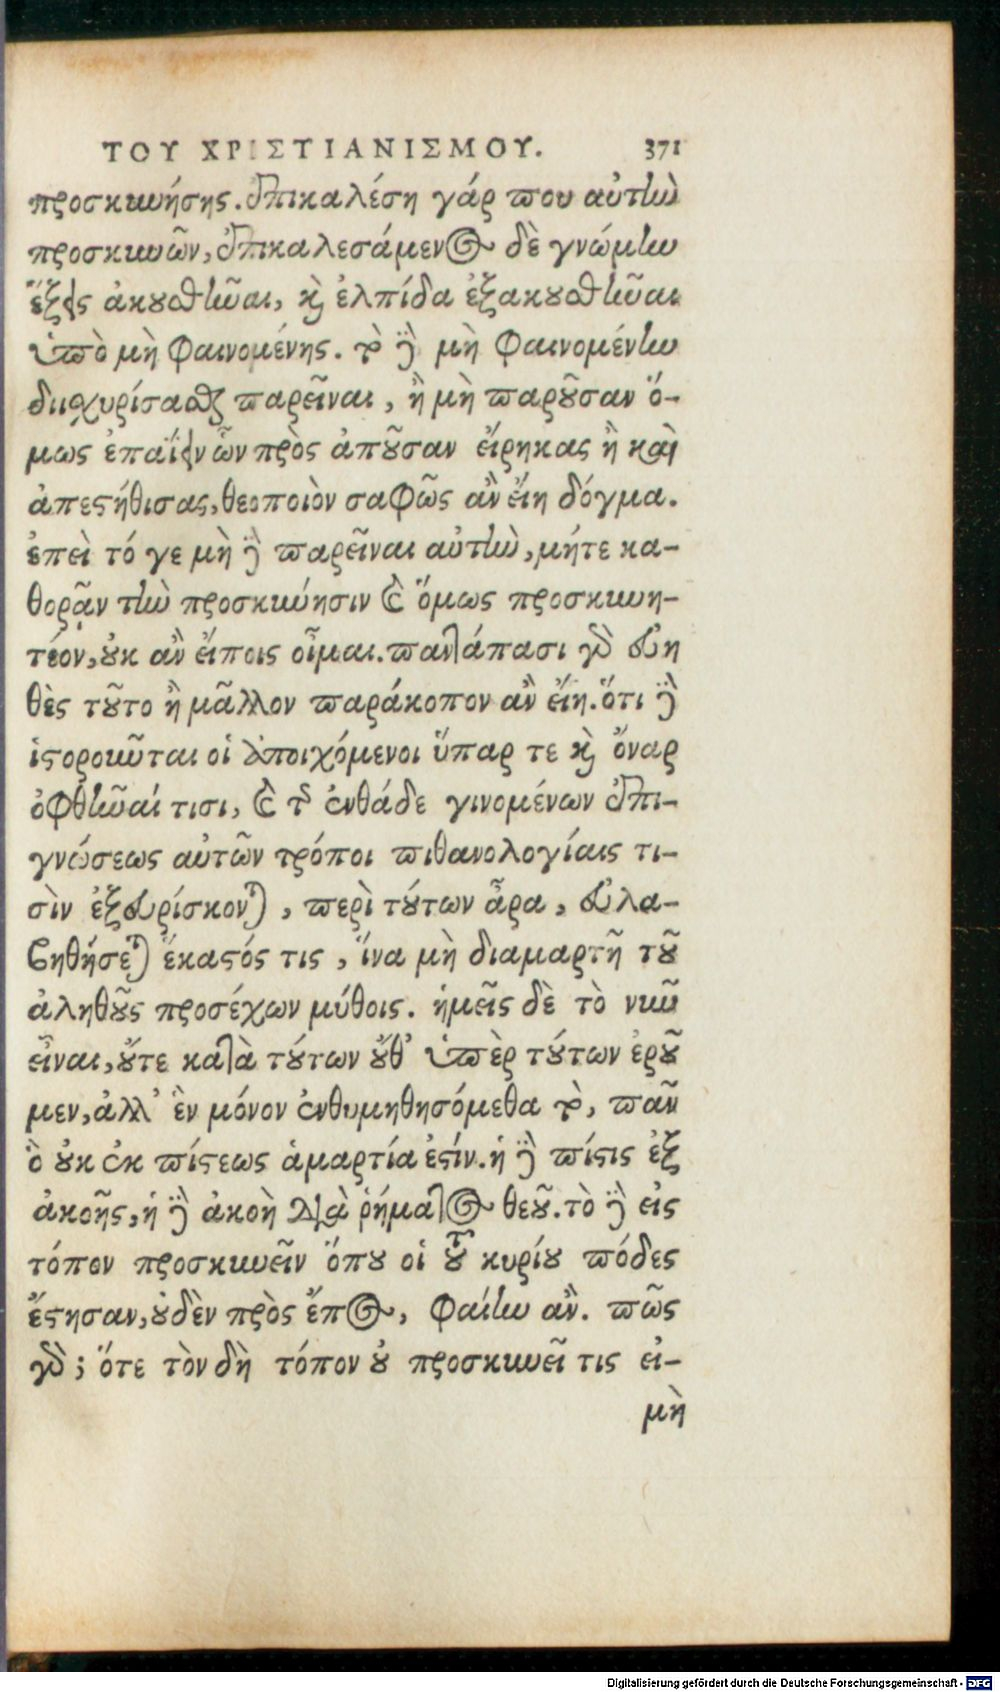 ΤΟΥ ΧΡΙΣΤΙΑΝΙΣΜΟΥ. 371
προσκυνήσης. ἐπικαλέση γάρ που αὐτὴν
προσκυνῶν, ἐπικαλεσάμενος δὲ γνώμην
ἕξεις ἀκουσθῆναι, καὶ ἐλπίδα ἐξακουσθῆναι
ὑπὸ μὴ φαινομένης. τὸ δὲ μὴ φαινομένην
διισχυρίσασθαι παρεῖναι, ἢ μὴ παροῦσαν ὅ-
μως ἐπαΐειν ὧν πρὸς ἀποῦσαν εἴρηκας ἢ καὶ
ἀπεστήθισας, θεοποιὸν σαφῶς ἂν εἴη δόγμα.
ἐπεὶ τό γε μὴ δὲ παρεῖναι αὐτὴν, μήτε κα-
θορᾷν τὴν προσκύνησιν καὶ ὅμως προσκυνη-
τέον, οὐκ ἂν εἴποις οἶμαι. παντάπασι γὰρ εὐη
θὲς τοῦτο ἢ μᾶλλον παράκοπον ἂν εἴη. ὅτι δὲ
ἱστοροῦνται οἱ ἀποιχόμενοι ὕπαρ τε καὶ ὄναρ
ὀφθῆναί τισι, καὶ τῶν ἐνθάδε γινομένων ἐπι-
γνώσεως αὐτῶν τρόποι πιθανολογίαις τι-
σὶν ἐξευρίσκονται, περὶ τούτων ἄρα, εὐλα-
βηθήσεται ἕκαστός τις, ἵνα μὴ διαμαρτῇ τοῦ
ἀληθοῦς προσέχων μύθοις. ἡμεῖς δὲ τὸ νῦν
εἶναι, οὔτε κατὰ τούτων οὔθ’ ὑπὲρ τούτων ἐροῦ
μεν, ἀλλ’ ἓν μόνον ἐνθυμηθησόμεθα τὸ, πᾶν
ὃ οὐκ ἐκ πίστεως ἁμαρτία ἐστίν. ἡ δὲ πίστις ἐξ
ἀκοῆς, ἡ δὲ ἀκοὴ διὰ ῥήματος θεοῦ. τὸ δὲ εἰς
τόπον προσκυνεῖν ὅπου οἱ τοῦ κυρίου πόδες
ἔστησαν, οὐδὲν πρὸς ἔπος, φαίην ἄν. πῶς
γὰρ; ὅτε τὸν δὴ τόπον οὐ προσκυνεῖ τις εἰ-
μὴ
Digitalisierung gefördert durch die Deutsche Forschungsgemeinschaft - DFG